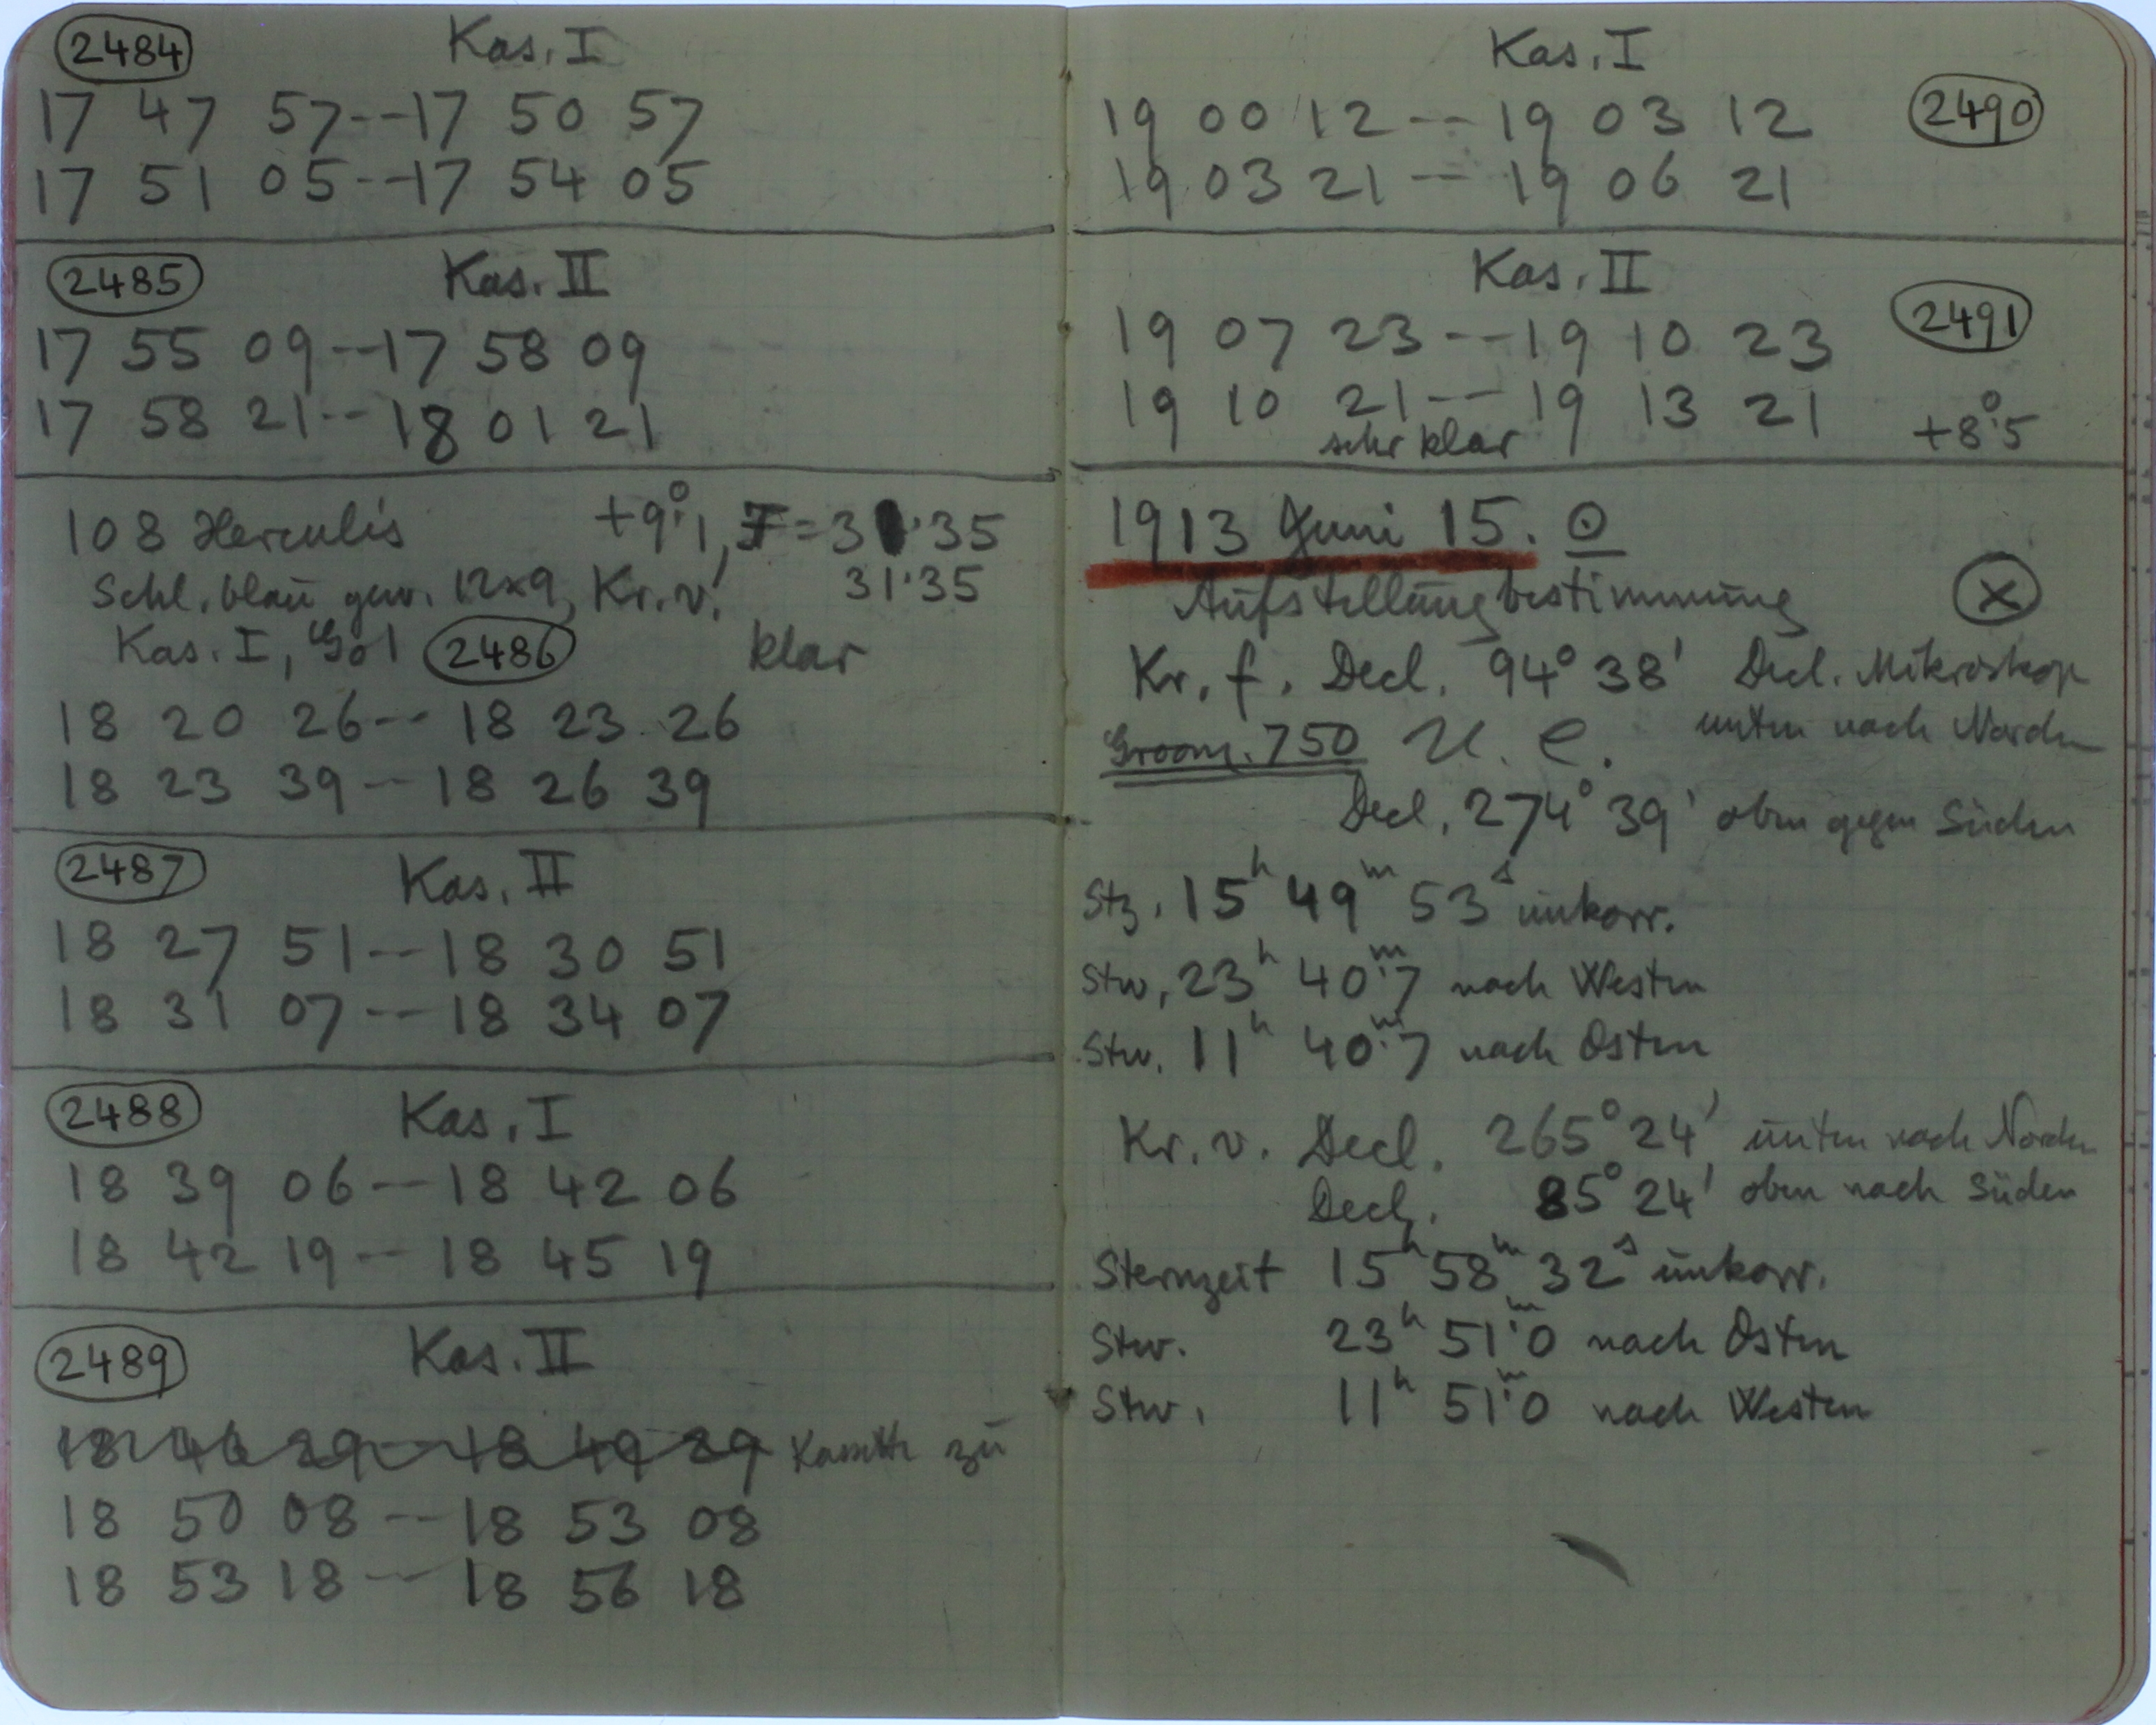 2484 Kas. I
17 47 57--17 50 57
17 51 05--17 54 05
2485 Kas. II
17 55 09--17 58 09
17 58 21--18 01 21
108 Herculis +9°.1, F=31.35
Schl. blau gew. 12x9, Kr. v! 31.35
Kas. I, 2486 klar
18 20 26--18 23 26
18 23 39--18 26 39
2487 Kas. II
18 27 51--18 30 51
18 31 07--18 34 07
2488 Kas. I
18 39 06--18 42 06
18 42 19--18 45 19
2489 Kas. II
18 46 29--18 49 29 Kassette zu
18 50 08--18 53 08
18 53 18--18 56 18
Kas. I
19 00 12--19 03 12 2490
19 03 21--19 06 21
Kas. II
19 07 23--19 10 23 2491
19 10 21--19 13 21 +8°.5
sehr klar
1913 Juni 15. ⊙
Aufstellungbestimmung x
Kr. f. Decl. 94° 38' Decl. Mikroskop
Groom. 750 U. C. unten nach Norden
Decl. 274° 39' oben gegen Süden
Stz. 15h 49m 53s unkorr.
Stw. 23h 40m.7 nach Westen
Stw. 11h 40m.7 nach Osten
Kr. v. Decl. 265° 24' unten nach Norden
Decl. 85° 24' oben nach Süden
Sternzeit 15h 58m 32s unkorr.
Stw. 23h 51m.0 nach Osten
Stw. 11h 51m.0 nach Westen